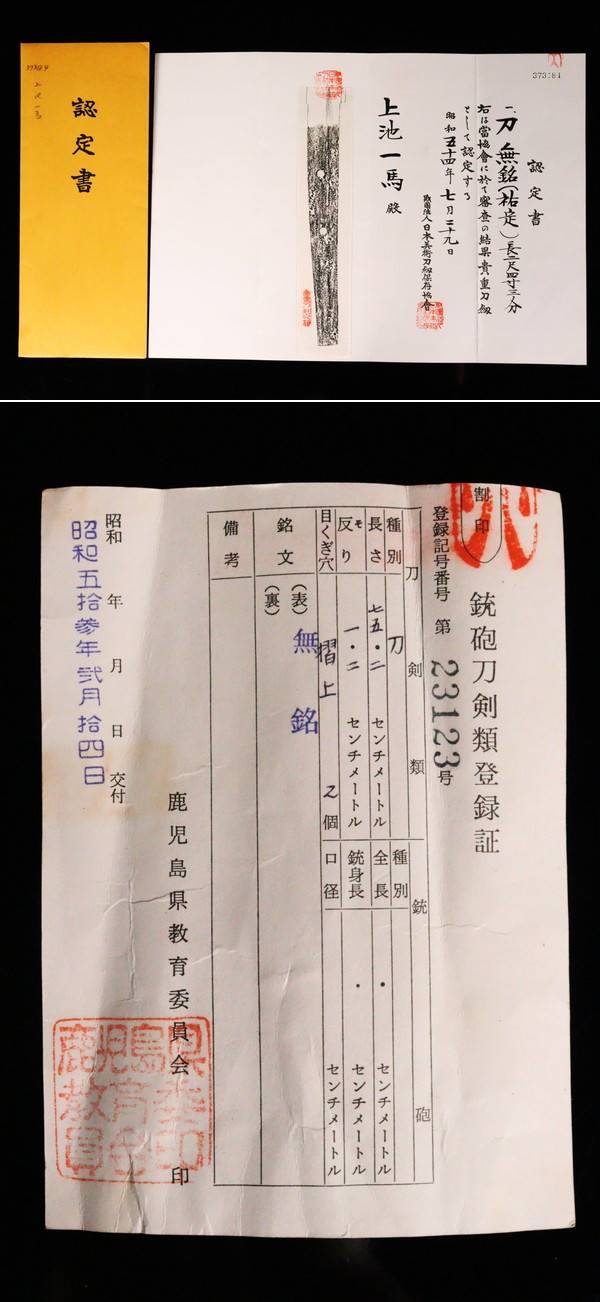 認定書
上池一馬
373181
認定書
一、刀 無銘(祐定)長二尺四寸三分
右は當協會に於て審査の結果貴重刀剣
として認定する
昭和五十四年七月二十九日
財團法人日本美術刀剣保存協會
上池一馬 殿
割印
銃砲刀剣類登録証
登録記号番号 第 23123号
刀剣類
銃砲
種別 刀
種別
長さ 七五・二 センチメートル
全長 ・ センチメートル
反り 一・二 センチメートル
銃身長 ・ センチメートル
目くぎ穴 摺上 2個
口径 センチメートル
銘文 (表) 無銘
(裏)
備考
鹿児島県教育委員会 印
昭和 年 月 日 交付
昭和五拾参年弐月拾四日